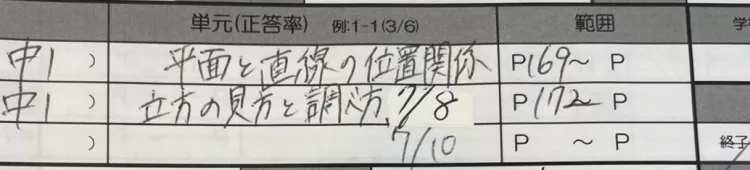 単元(正答率) 例:1-1(3/6) 範囲 学
中1 ) 平面と直線の位置関係 P169~ P
中1 ) 立方の見方と調べ方 7/8 P172~ P
) 7/10 P ~ P 終了